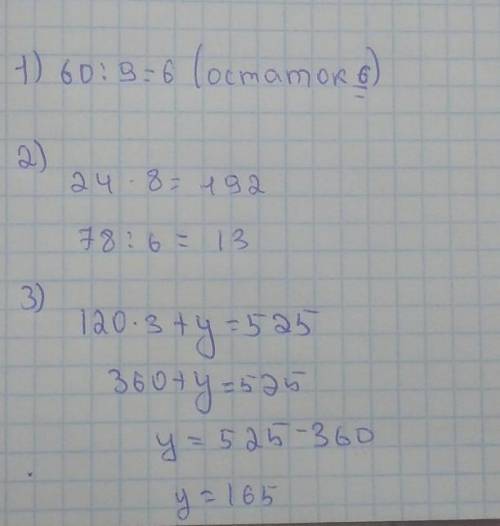 1) 60 : 9 = 6 (остаток 6)
2)
24 · 8 = 192
78 : 6 = 13
3)
120 · 3 + y = 525
360 + y = 525
y = 525 - 360
y = 165